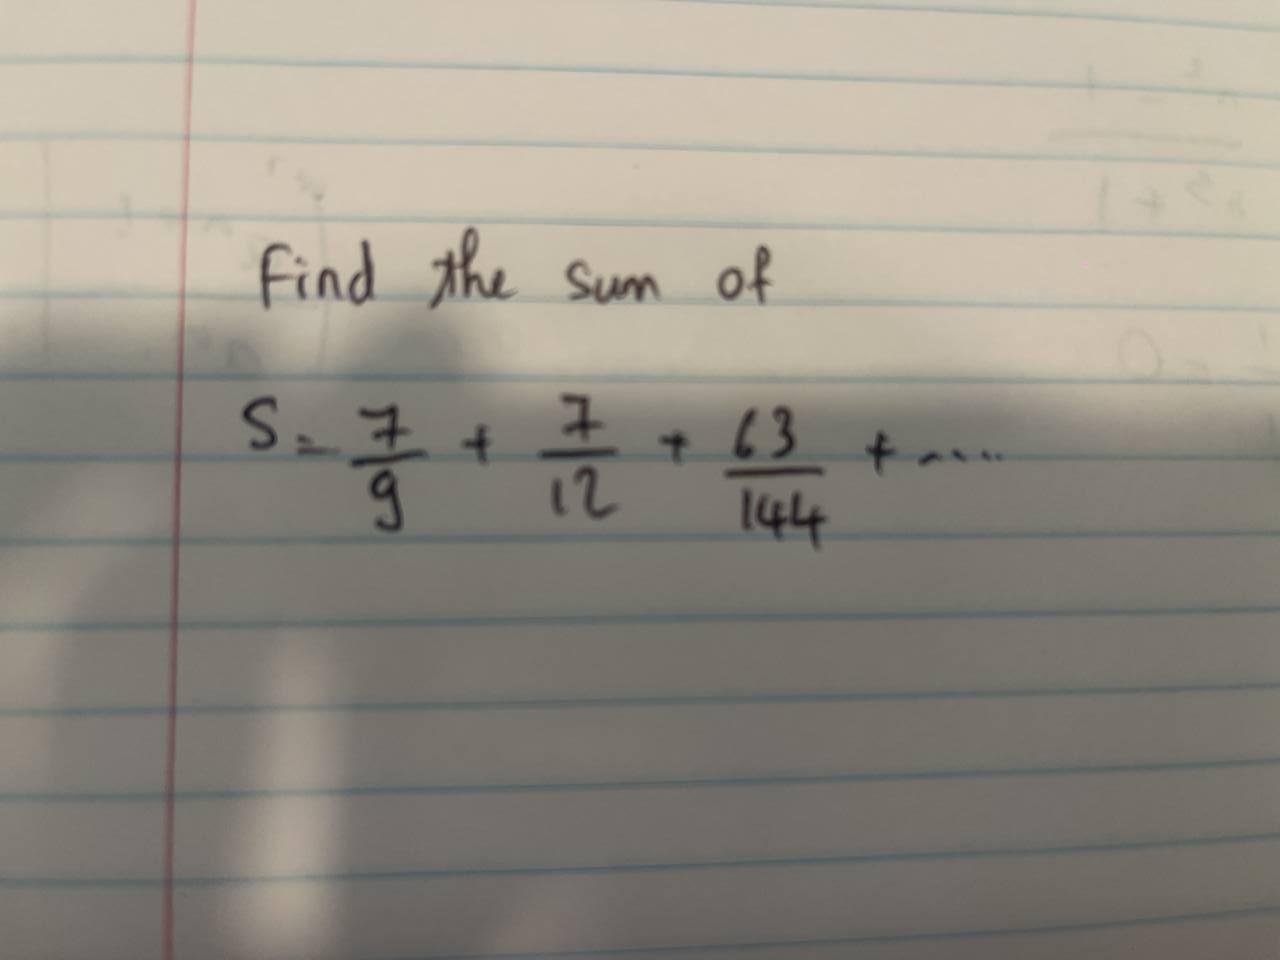 Find the sum of
S = 7/9 + 7/12 + 63/144 + ....